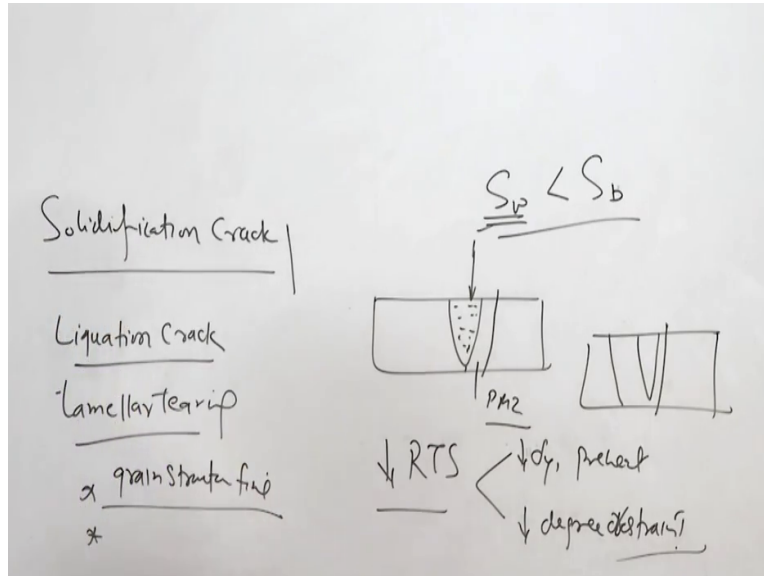 Solidification Crack
Liquation Crack
Lamellar tearing
* grain structure fine
*
Sw < Sb
PMZ
↓ RTS
↓ σy, preheat
↓ degree restraint